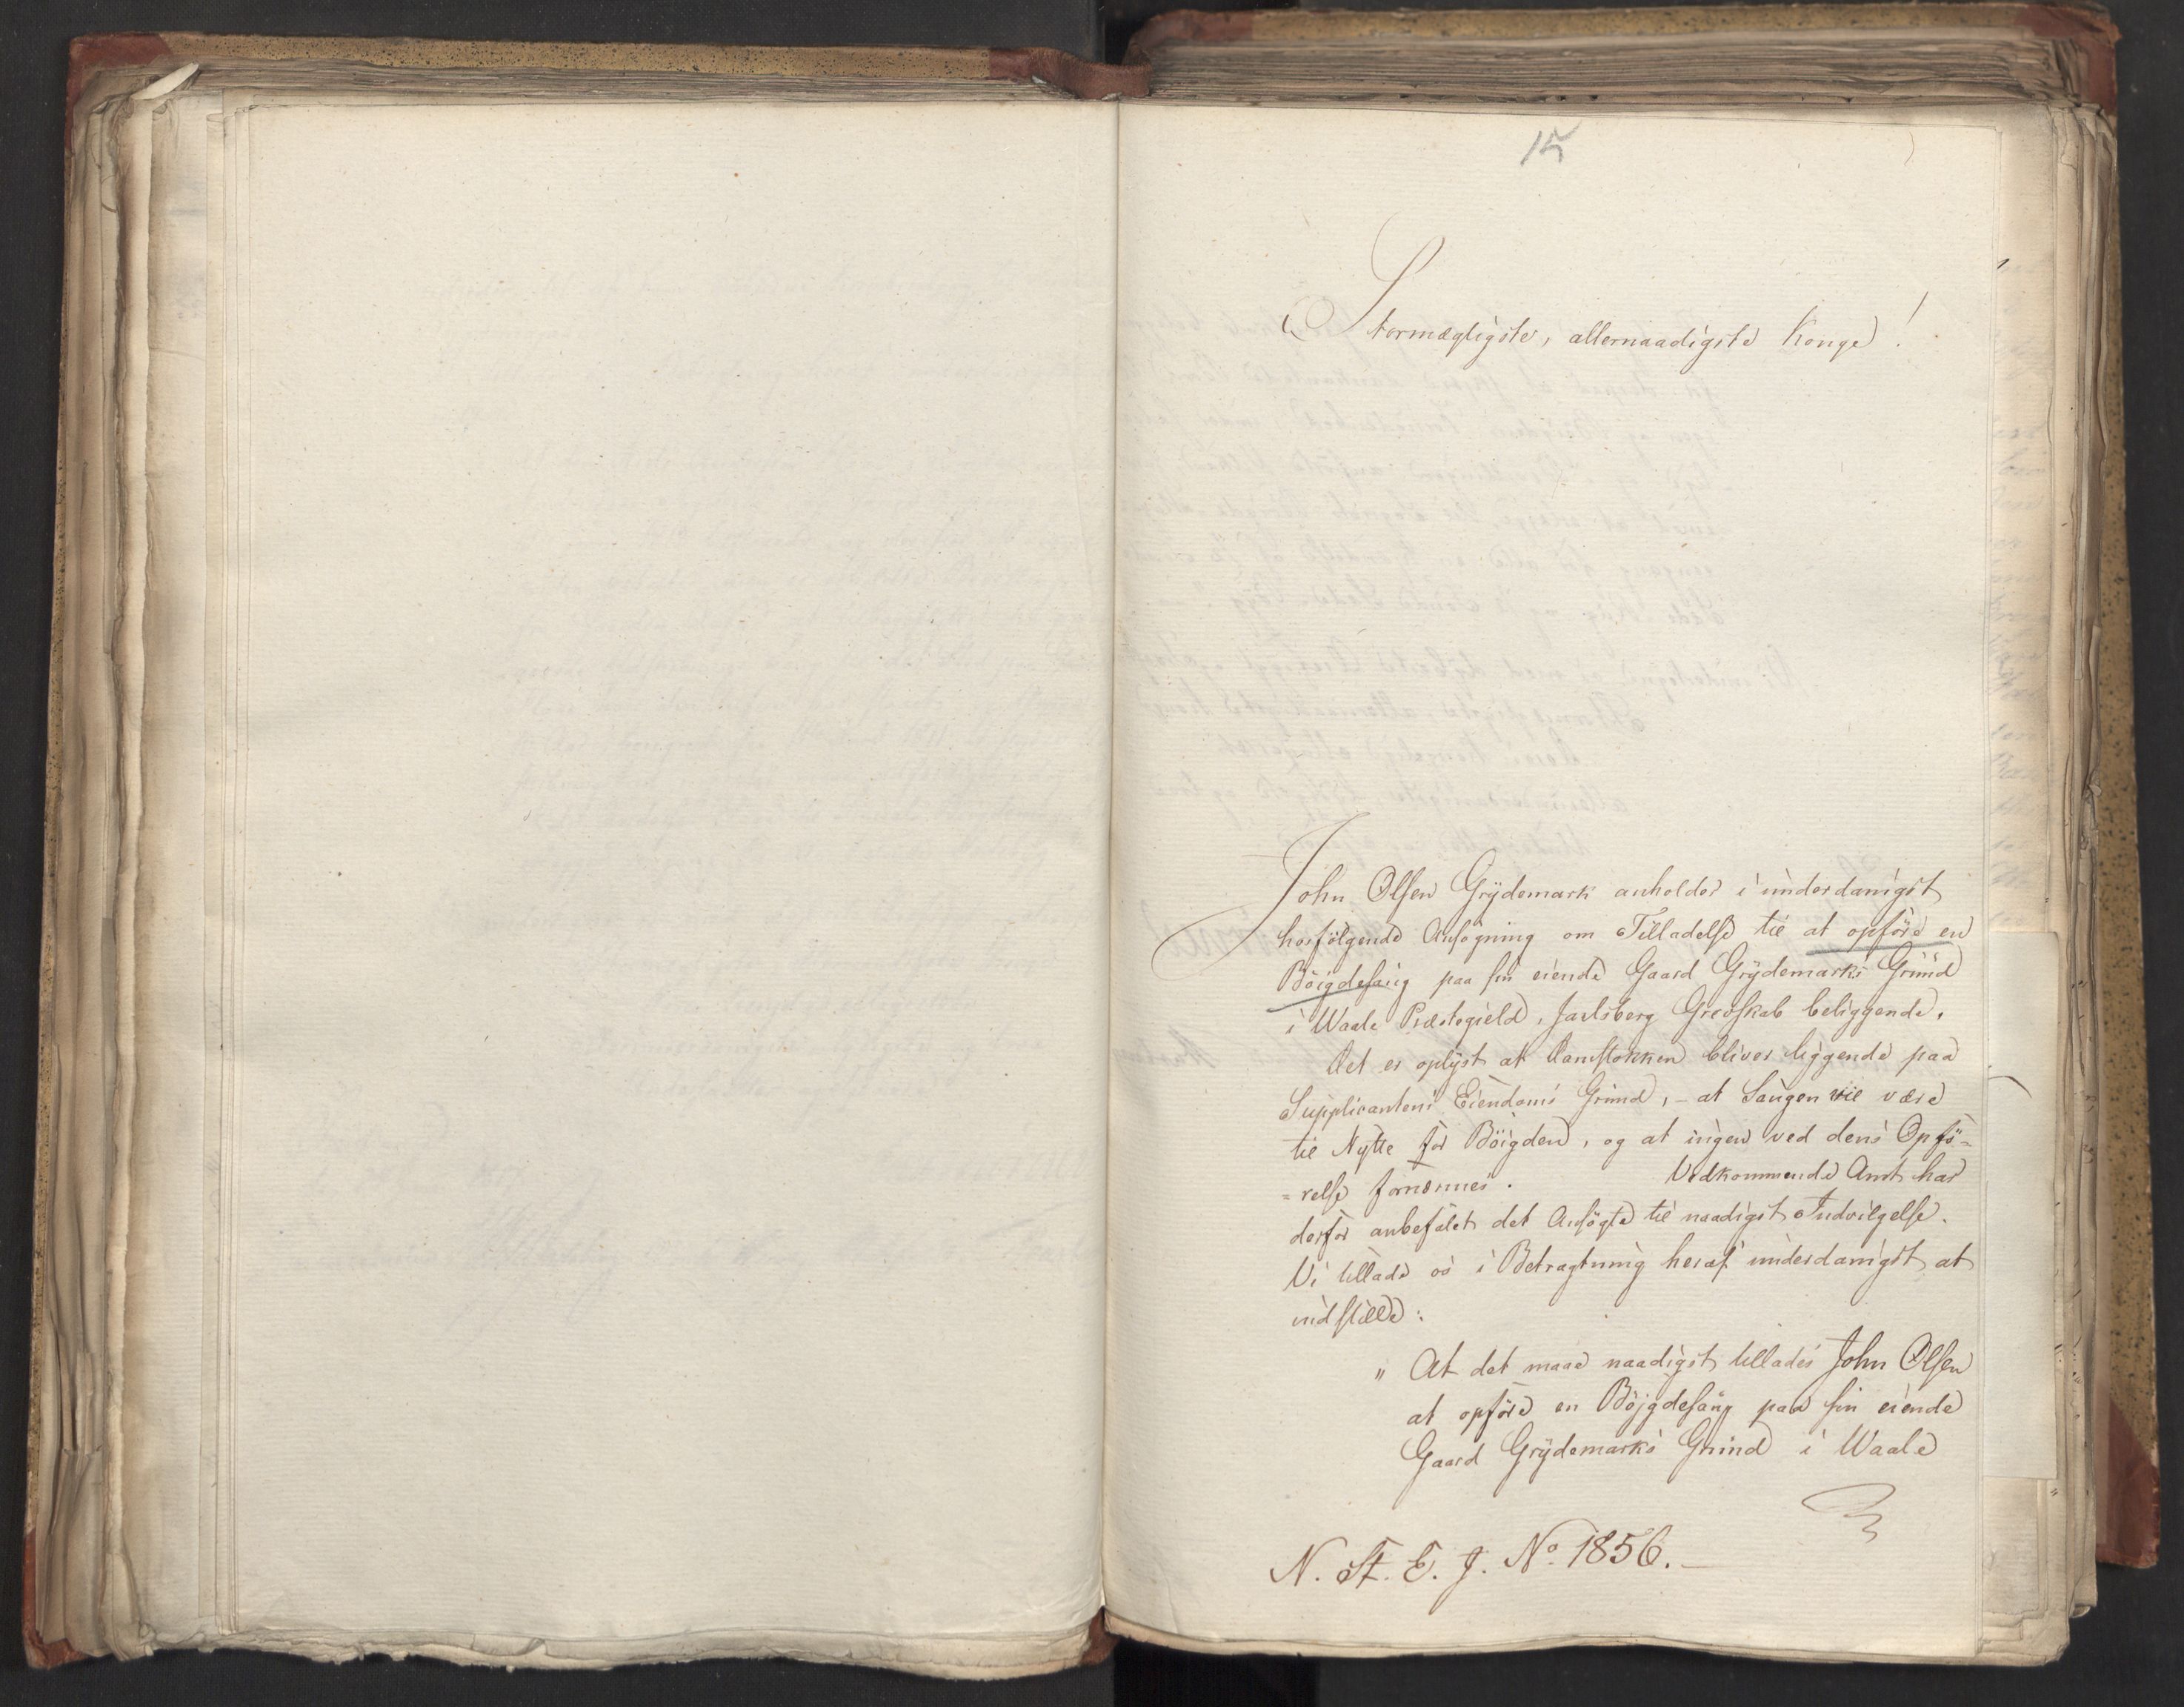 15
Stormægtigste, allernaadigste Konge!
John Olsen Grydemark anholder i underdanigst
hosfølgende Ansøgning om Tilladelse til at opføre en
Bøigdesaug paa sin eiende Gaard Grydemarks Grund
i Waale Præstegield, Jarlsberg Grevskab beliggende.
Det er oplyst at Damstokken bliver liggende paa
Supplicantens Eiendoms Grund, - at Saugen vil være
til Nytte for Bøigden, og at ingen ved dens Opfø=
=relse fornærmes. Vedkommende Amt har
derfor anbefalet det Ansøgte til naadigst Indvilgelse.
Vi tillade os i Betragtning heraf underdanigst at
indstille:
" At det maae naadigst tillades John Olsen
at opføre en Bøjgdesaug paa sin eiende
Gaard Grydemarks Grund i Waale
N. St. E. J. No. 1856.